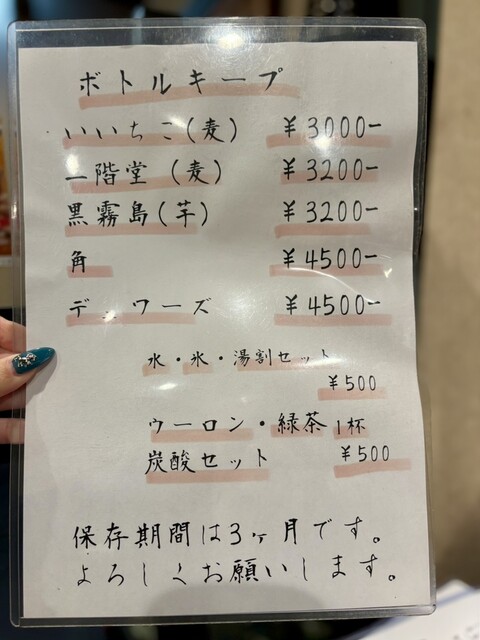 ボトルキープ
いいちこ(麦) ¥3000-
二階堂(麦) ¥3200-
黒霧島(芋) ¥3200-
角 ¥4500-
デュワーズ ¥4500-
水・氷・湯割セット
¥500
ウーロン・緑茶1杯
炭酸セット ¥500
保存期間は3ヶ月です。
よろしくお願いします。